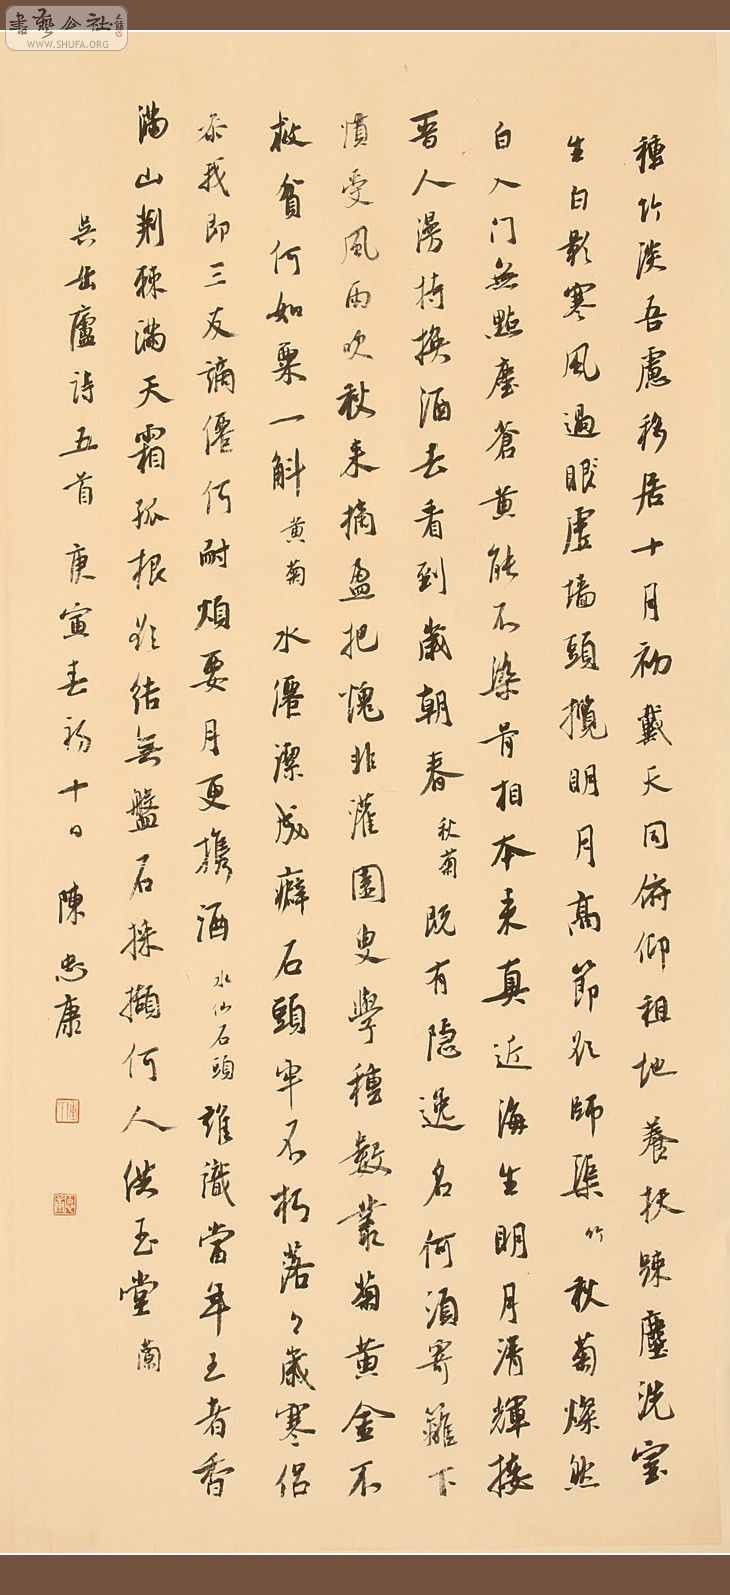 書藝公社
WWW.SHUFA.ORG
種竹淡吾慮移居十月初戴天同俯仰租地養扶疎塵洗室
生白影寒風過眼虛墻頭攬明月高節欲師渠竹秋菊燦然
白入門無點塵蒼黄能不染骨相本來真近海生明月清輝接
晋人漫持換酒去看到歲朝春秋菊既有隐逸名何須寄籬下
慣受風雨吹秋来摘盈把愧非灌園叟學種數叢菊黄金不
救貧何如粟一斛黄菊水僊潔成癖石頭牢不朽落々歲寒侣
添我即三友謫僊何耐煩要月更攜酒水仙石頭誰識當年王者香
滿山荆棘滿天霜孤根欲結無盤石採擷何人供玉堂蘭
吴缶廬詩五首庚寅春初十日陳忠康